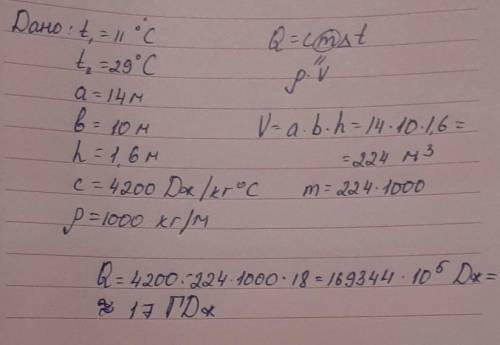 Дано: t₁ = 11 °C
t₂ = 29°C
a = 14 м
b = 10 м
h = 1,6 м
c = 4200 Дж/кг°C
ρ = 1000 кг/м
Q = cmΔt
"
ρ·V
V = a·b·h = 14·10·1,6 =
= 224 м³
m = 224·1000
Q = 4200·224·1000·18 = 169344·10⁵ Дж =
≈ 17 ГДж